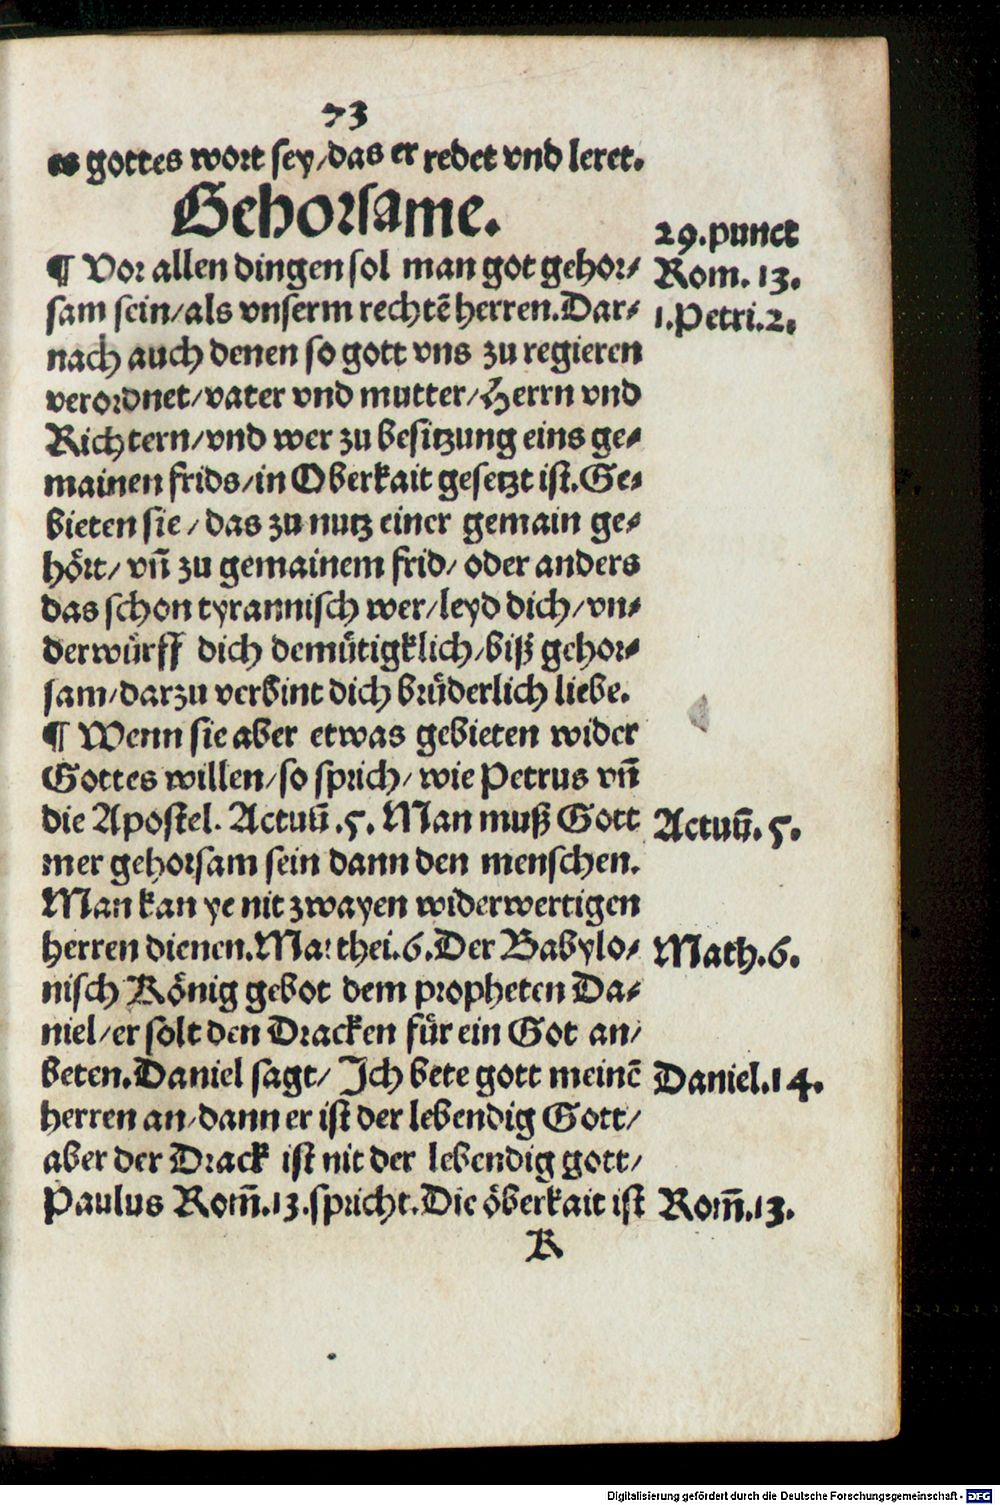 73
es gottes wort sey/das er redet vnd leret.
Gehorsame.
29.punct
¶ Vor allen dingen sol man got gehor⸗
Rom. 13.
sam sein/als vnserm rechtē herren.Dar⸗
1.Petri.2.
nach auch denen so gott vns zu regieren
verordnet/vater vnd mutter/Herrn vnd
Richtern/vnd wer zu besitzung eins ge⸗
mainen frids/in Oberkait gesetzt ist.Ge⸗
bieten sie/das zu nutz einer gemain ge⸗
hört/vn̄ zu gemainem frid/oder anders
das schon tyrannisch wer/leyd dich/vn⸗
derwürff dich demütigklich/biß gehor⸗
sam/darzu verbint dich brüderlich liebe.
¶ Wenn sie aber etwas gebieten wider
Gottes willen/so sprich/wie Petrus vn̄
die Apostel. Actuū.5. Man muß Gott
Actuū.5.
mer gehorsam sein dann den menschen.
Man kan ye nit zwayen widerwertigen
herren dienen.Matthei.6.Der Babylo⸗
Math.6.
nisch König gebot dem propheten Da⸗
niel/er solt den Dracken für ein Got an/
beten.Daniel sagt/Ich bete gott meinē
Daniel.14.
herren an/dann er ist der lebendig Gott/
aber der Drack ist nit der lebendig gott/
Paulus Rom̄.13.spricht.Die öberkait ist
Rom̄.13.
K
Digitalisierung gefördert durch die Deutsche Forschungsgemeinschaft - DFG